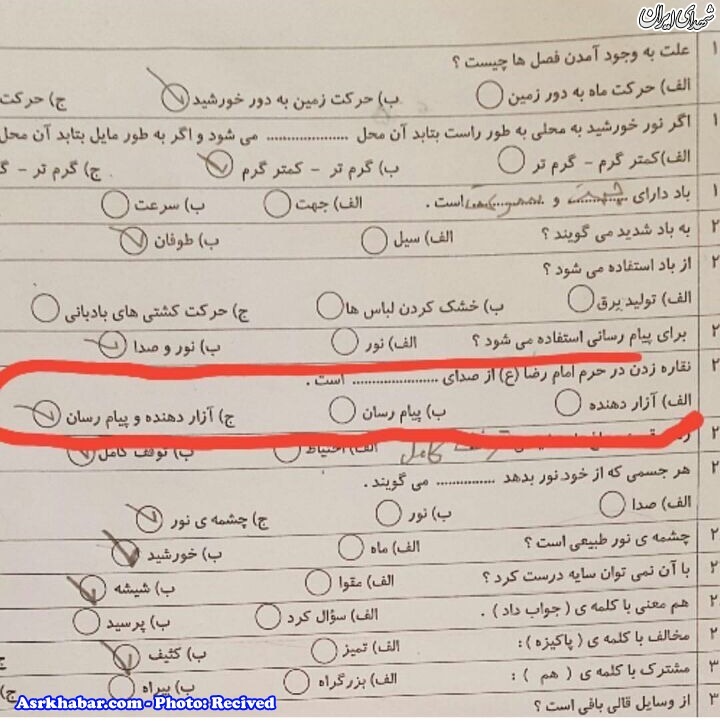 شهدای ایران
۱ علت به وجود آمدن فصل ها چیست ؟
الف) حرکت ماه به دور زمین ب) حرکت زمین به دور خورشید ج) حرکت
۱ اگر نور خورشید به محلی به طور راست بتابد آن محل .................... می شود و اگر به طور مایل بتابد آن محل
الف)کمتر گرم – گرم تر ب) گرم تر – کمتر گرم ج) گرم تر –
۱ باد دارای جهت و سرعت است .
الف) جهت ب) سرعت
۲ به باد شدید می گویند ؟
الف) سیل ب) طوفان
۲ از باد استفاده می شود ؟
الف) تولید برق ب) خشک کردن لباس ها ج) حرکت کشتی های بادبانی
۲ برای پیام رسانی استفاده می شود ؟ الف) نور ب) نور و صدا
۲ نقاره زدن در حرم امام رضا (ع) از صدای .................... است .
الف) آزار دهنده ب) پیام رسان ج) آزار دهنده و پیام رسان
۲ کامل الف) احتیاط ب) توقف کامل
۲ هر جسمی که از خود نور بدهد ............... می گویند .
الف) صدا ب) نور ج) چشمه ی نور
۲ چشمه ی نور طبیعی است ؟ الف) ماه ب) خورشید
۲ با آن نمی توان سایه درست کرد ؟ الف) مقوا ب) شیشه
۲ هم معنی با کلمه ی ( جواب داد ) . الف) سؤال کرد ب) پرسید
۲ مخالف با کلمه ی ( پاکیزه ) : الف) تمیز ب) کثیف
۳ مشترک با کلمه ی ( هم ) : الف) بزرگراه ب) بیراه ج)
۳ از وسایل قالی بافی است ؟
Asrkhabar.com - Photo: Recived